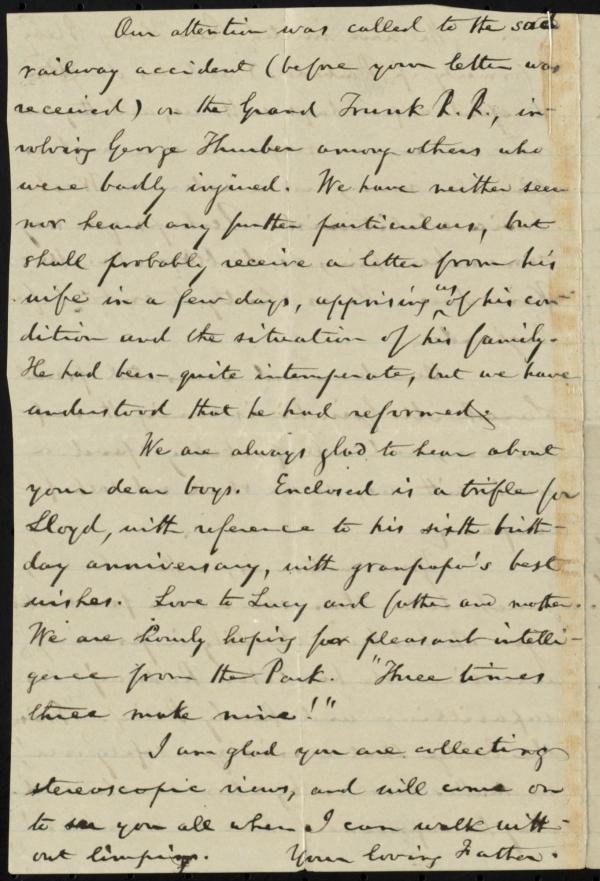 Our attention was called to the sad
railway accident (before your letter was
received) on the Grand Trunk R. R., in-
volving George Thurber among others who
were badly injured. We have neither seen
nor heard any further particulars, but
shall probably receive a letter from his
wife in a few days, apprising us of his con-
dition and the situation of his family.
He had been quite intemperate, but we have
understood that he had reformed.
We are always glad to hear about
your dear boys. Enclosed is a trifle for
Lloyd, with reference to his sixth birth-
day anniversary, with granpapa's best
wishes. Love to Lucy and father and mother.
We are hourly hoping for pleasant intelli-
gence from the Park. "Three times
three make nine!"
I am glad you are collecting
stereoscopic views, and will come on
to see you all when I can walk with-
out limping. Your loving Father.